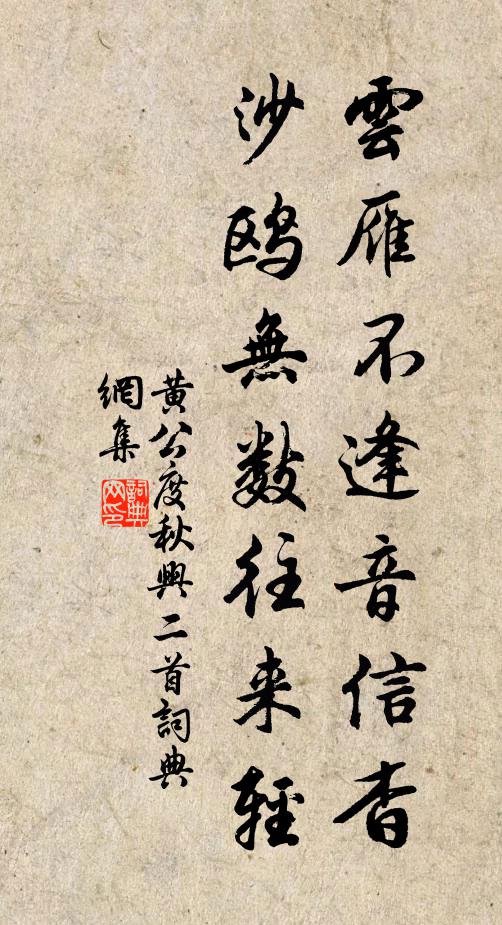 雲雁不逢音信杳
沙鸥無數往来輕
黄公度秋興二首詞典
網集
詞典
网印